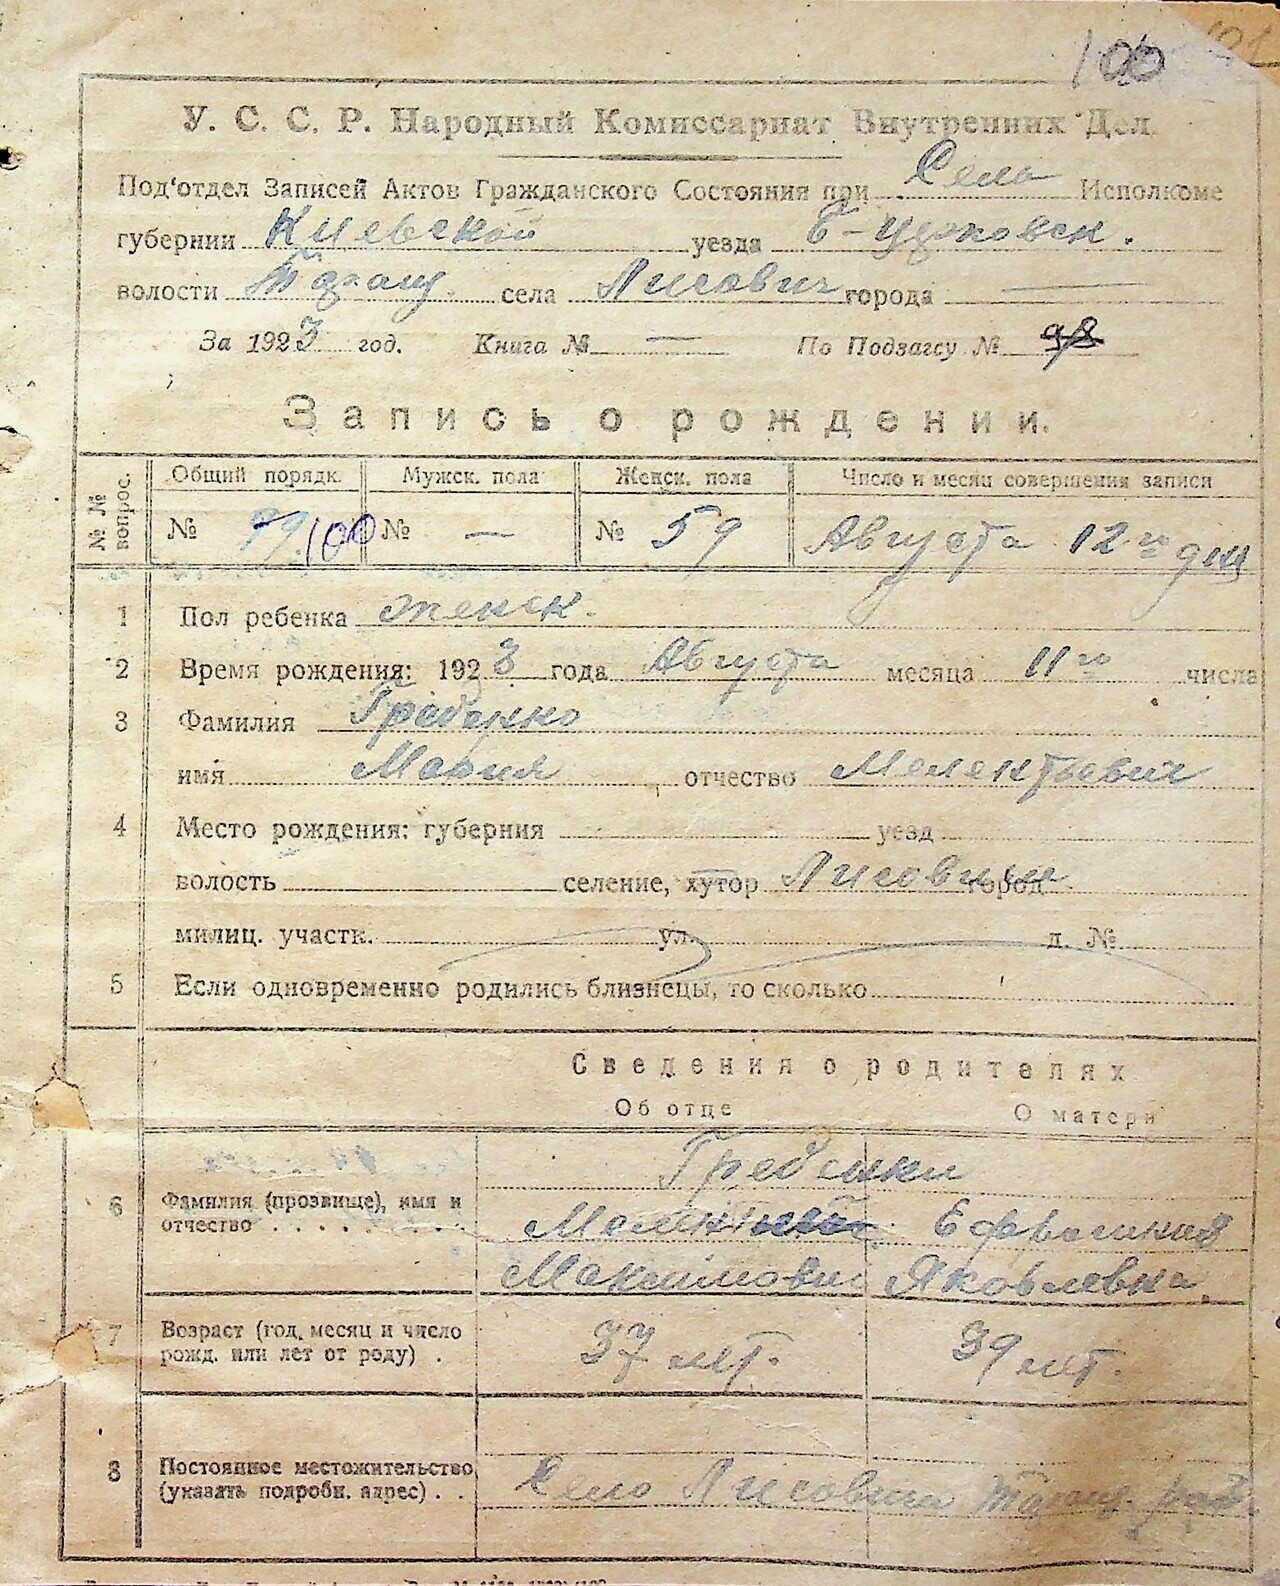 100
У. С. С. Р. Народный Комиссариат Внутренних Дел.
Под'отдел Записей Актов Гражданского Состояния при Села Исполкоме
губернии Киевской уезда Б-Церковск.
волости Таращ. села Лисович города —
За 1923 год. Книга № — По Подзагсу № 98
Запись о рождении.
№ № вопрос. Общий порядк. Мужск. пола Женск. пола Число и месяц совершения записи
№ 99 100 № — № 59 Августа 12го дня
1 Пол ребенка женск.
2 Время рождения: 1923 года Августа месяца 11го числа
3 Фамилия Гребенко
имя Мария отчество Мелентьевич
4 Место рождения: губерния уезд
волость селение, хутор Лисовичи город
милиц. участк. ул. д. №
5 Если одновременно родились близнецы, то сколько
Сведения о родителях
Об отце О матери
Гребенки
6 Фамилия (прозвище), имя и
отчество . . . . . . . Ефросиния
Максимович Яковлевна
7 Возраст (год, месяц и число
рожд. или лет от роду) . 37 лет. 39 лет.
8 Постоянное местожительство
(указать подробн. адрес) . . Село Лисовичи Таращ. рай.